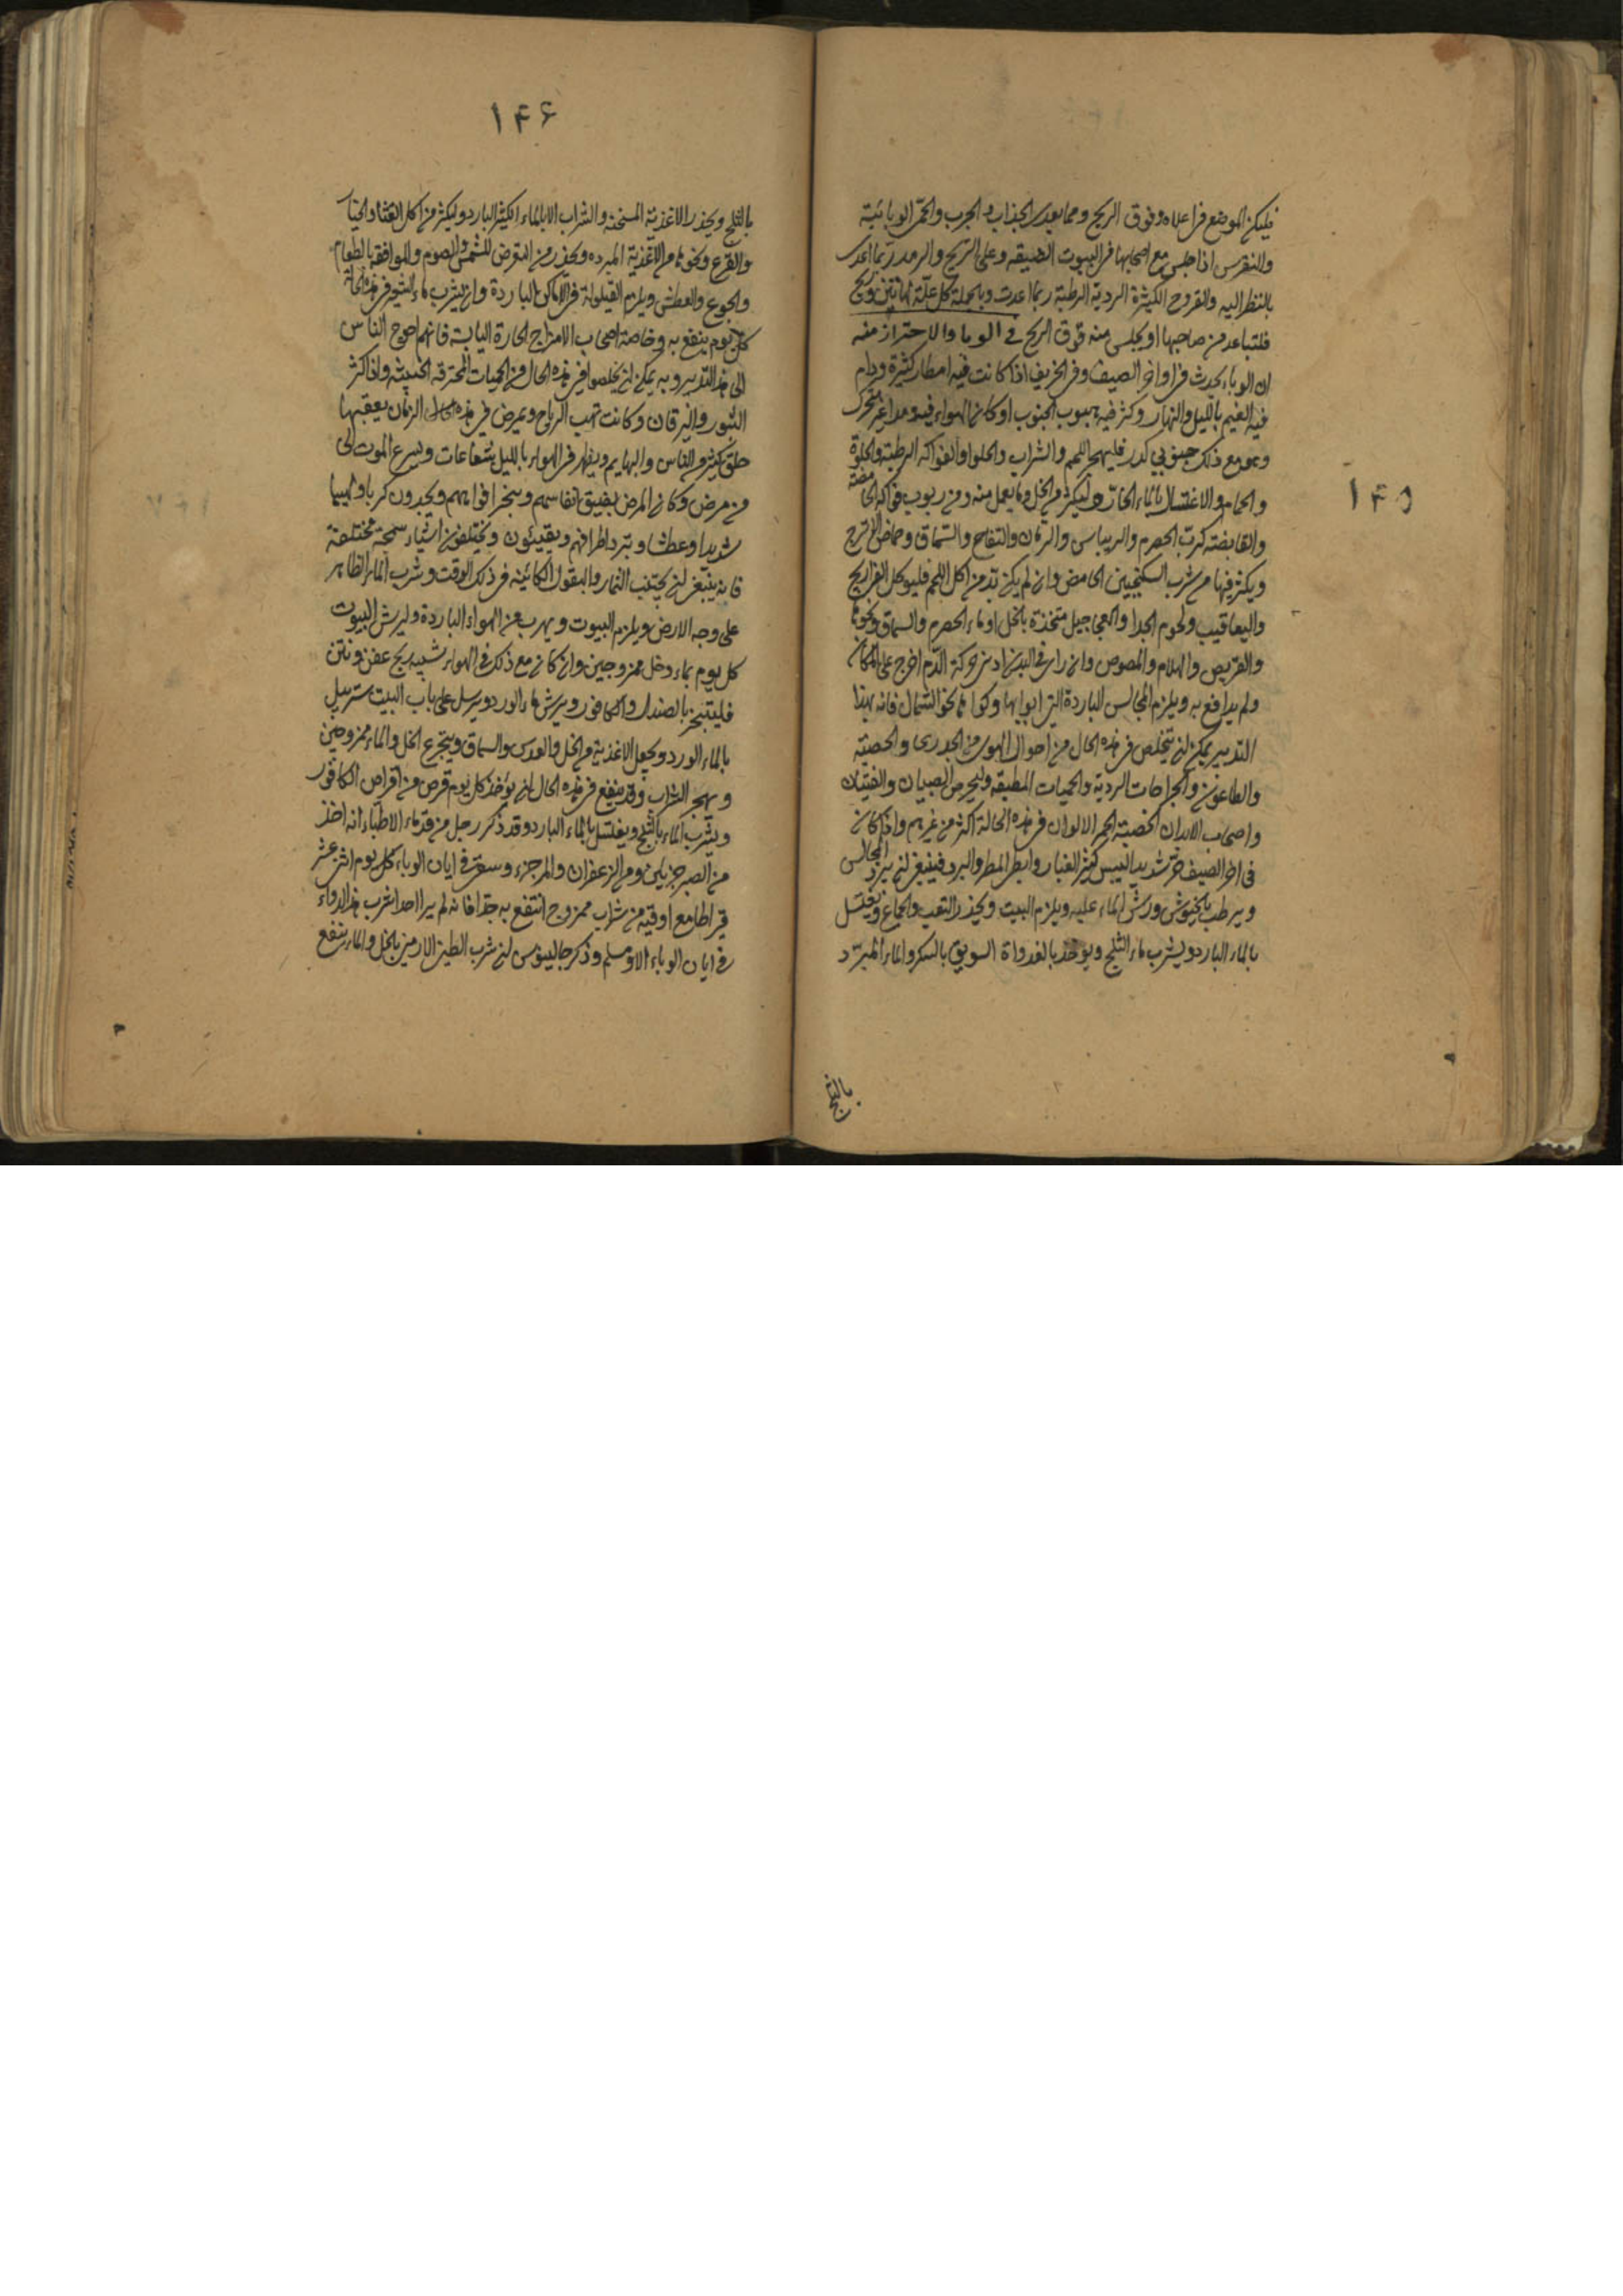 ۱۴۵
فليكن الموضع في اعلاه وفوق الريح ومما يعدى الجذاب والجرب والحمى الوبائية
والنقرس اذا جلس مع اصحابها في البيوت الضيقه وعلى الريح والرمد ربما اعدى
بالنظر اليه والقروح الكثيرة الردية الرطبة ربما اعدت وبالجملة كل علة لها نتن وريح
فلتباعد من صاحبها او يجلس منه فوق الريح في الوبا والاحتراز منه
ان الوباء يحدث في اواخر الصيف وفي الخريف اذا كانت فيه امطار كثيرة ودام
فيه الغيم بالليل والنهار وكثر فيه هبوب الجنوب او كان الهواء فيه غير متحرك
وهو مع ذلك جنوبي كدر فليهجر اللحم والشراب والحلوا والفواكه الرطبة والحلوة
والحمام والاغتسال بالماء الحار وليكثر من الخل وما يعمل منه ومن ربوب فواكه الحامضة
والقابضة كرب الحصرم والريباس والرمان والتفاح والسماق وحماض الاترج
ويكثر فيها من شرب السكنجبين الحامض وان لم يكن بد من اكل اللحم فليوكل الفراريج
واليعاقيب ولحوم الجدا والعجاجيل متخذة بالخل او ماء الحصرم والسماق ونحوها
والقريص والهلام والمصوص وان راى في البدن ادنى حركة الدم اخرج على المكان
ولم يدافع به ويلزم المجالس الباردة التي ابوابها وكواها نحو الشمال فانه بهذا
التدبير يمكن ان يتخلص في هذه الحال من احوال الهوى من الجدرى والحصبة
والطاعون والجراحات الردية والحميات المطبقه وليحرص الصبيان والفتيان
واصحاب الابدان الخصبة الحمر الالوان في هذه الحالة اكثر من غيرهم واذا كان
في اخر الصيف حر شديد اليبس كثير الغبار وابطى المطر والبرد فينبغي ان يبرد المجالس
ويرطب بالخيوش ورش الماء عليه ويلزم البيت ويحذر التعب والجماع ويغتسل
بالماء البارد ويشرب ماء الثلج ويوخذ بالغدواة السويق بالسكر والماء المبرد
بالثلج
۱۴۶
بالثلج ويحذر الاغذية المسخنة والشراب الا بالماء الكثير البارد وليكثر من اكل القثاء والخيار
والقرع ونحوها من الاغذية المبرده ويحذر من التعرض للشمس والصوم والموافقه بالطعام
والجوع والعطش ويلزم القيلولة في الاماكن الباردة وان يشرب ماء الشعير في هذه الحالة
كل يوم ينفع به وخاصة اصحاب الامزاج الحارة اليابسة فانهم احوج الناس
الى هذا التدبير وبه يمكن ان يخلصوا في هذه الحال من الحميات المحترقه الخبيثه واذا كثر
البثور واليرقان وكانت تهب الرياح ويمرض في هذه الحال الزمان يعقبها
خلق كثير من الناس والبهايم ويظهر في الهواء بالليل شعاعات ويسرع الموت الى
من مرض وكان المرض بضيق انفاسهم وببخر افواههم ويجدون كربا ولهيبا
شديدا وعطشا وبترد اطرافهم ويقيئون ويختلفون اشياء سمجة مختلفة
فانه ينبغي ان يجتنب الثمار والبقول الكائينه في ذلك الوقت وشرب الماء الظاهر
على وجه الارض ويلزم البيوت ويهرب من الهواء الباردة وليرش البيوت
كل يوم بماء وخل ممزوجين وان كان مع ذلك في الهواء شبيه بريح عفن ونتن
فليتبخر بالصندل والكافور ويرش ماء الورد ويرسل على باب البيت ستر يبل
بالماء الورد ويجعل الاغذية من الخل والعدس والسماق ويتجرع الخل والماء ممزوجين
ويهجر الشراب وقد ينفع في هذه الحال ان يؤخذ كل يوم قرص من اقراص الكافور
ويشرب الماء بالثلج ويغتسل بالماء البارد وقد ذكر رجل من قدماء الاطباء انه اخذ
من الصبر جزئين ومن الزعفران والمر جزء وسقى في ايان الوباء كل يوم اثنى عشر
قيراطا مع اوقيه من شراب ممزوج انتفع به جدا فانه لم ير احدا شرب هذا الدواء
في ايان الوباء الا وسلم وذكر جالينوس ان شرب الطين الارمني بالخل والماء ينفع